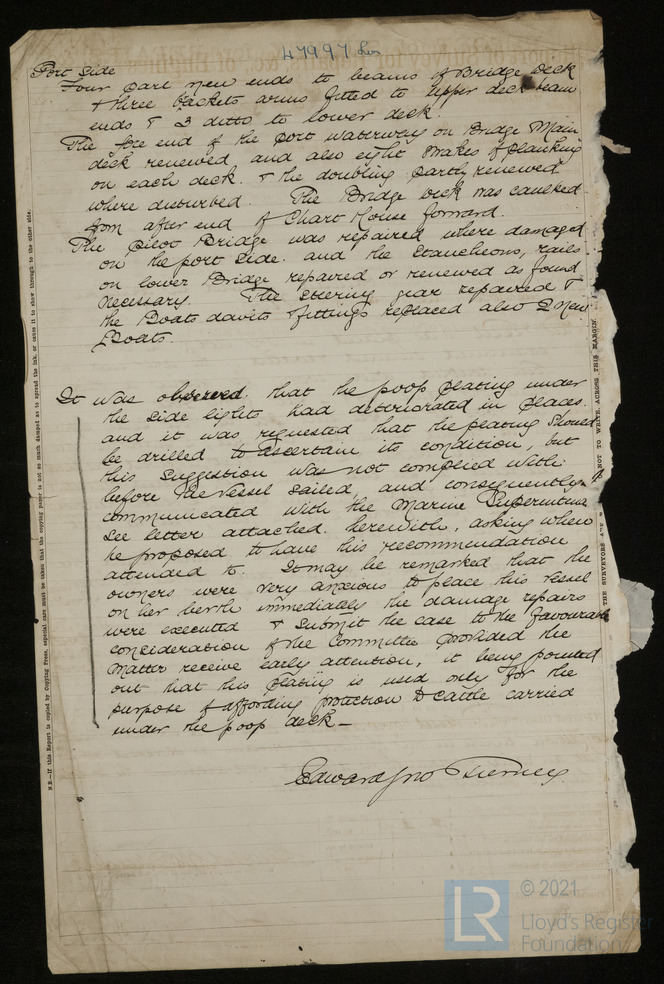 47997 Liv
Port Side
Four part new ends to beams of Bridge deck
& three brackets arms fitted to upper deck beam
ends & 3 ditto to lower deck.
The fore end of the port waterway on Bridge & Main
deck renewed, and also eight strakes of planking
on each deck. & the doubling partly renewed
where disturbed. The Bridge deck was caulked
from after end of Chart House forward.
The pilot Bridge was repaired where damaged
on the port side. and the stancheons, rails
on lower Bridge repaired or renewed as found
necessary. The steering gear repaired &
the Boats davits & fittings replaced also 2 New
Boats.
It was observed that the poop plating under
the side lights had deteriorated in places.
and it was requested that the plating should
be drilled to ascertain its condition, but
this suggestion was not complied with
before the vessel sailed, and consequently
communicated with the Marine Superintend
see letter attached herewith, asking when
he proposed to have this recommendation
attended to. It may be remarked that the
owners were very anxious to place this vessel
on her berth immediately the damage repairs
were executed & submit the case to the favourable
consideration of the Committee provided the
matter receive early attention, it being pointed
out that this plating is used only for the
purpose of affording protection to cattle carried
under the poop deck —
Edward Jno Tierney
N.B.—If this Report is copied by Copying Press, especial care must be taken that the copying paper is not so much damped as to spread the ink, or cause it to show through to the other side.
THE SURVEYORS ARE
NOT TO WRITE ACROSS THIS MARGIN
LR
© 2021
Lloyd's Register
Foundation